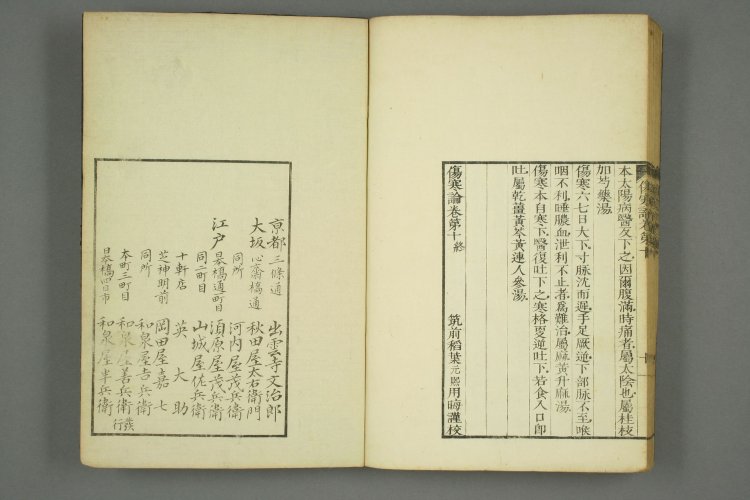 本太陽病醫反下之因爾腹滿時痛者屬太陰也屬桂枝
加芍藥湯
傷寒六七日大下寸脉沈而遲手足厥逆下部脉不至喉
咽不利唾膿血泄利不止者爲難治屬麻黃升麻湯
傷寒本自寒下醫復吐下之寒格更逆吐下若食入口即
吐屬乾薑黃芩黃連人參湯
傷寒論卷第十 終
筑前稻葉元熙用晦謹校
傷寒論卷第十
京都 三條通 出雲寺文治郎
大坂 心齋橋通 秋田屋太右衛門
同所 河内屋茂兵衛
江戸 日本橋通町目 須原屋茂兵衛
同二町目 山城屋佐兵衛
十軒店 英大助
芝神明前 岡田屋嘉七
同所 和泉屋吉兵衛
本町三町目 和泉屋善兵衛
日本橋四日市 和泉屋半兵衛
發行